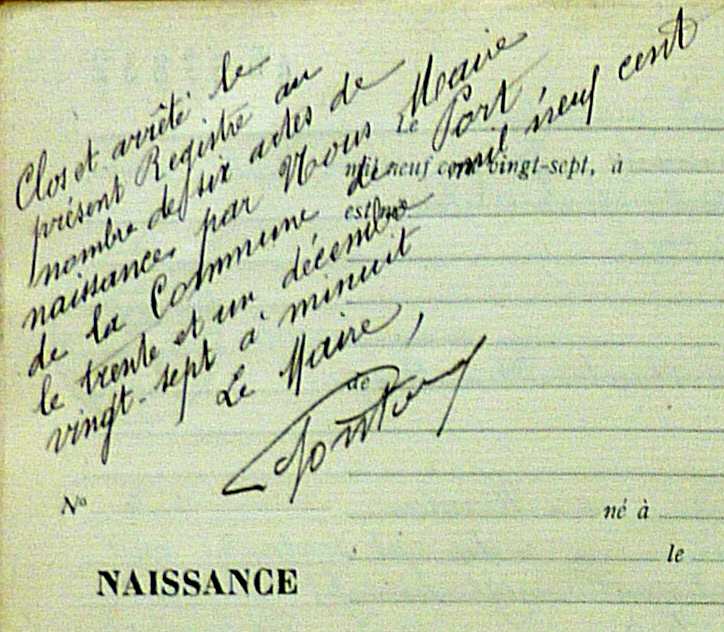 Clos et arrêté le
présent Registre au
nombre de six actes de
naissances par Nous Maire
de la Commune de Port,
le trente et un décembre mil neuf cent
vingt-sept à minuit
Le Maire,
Le
mil neuf cent vingt-sept, à
est né
de
No
né à
le
NAISSANCE